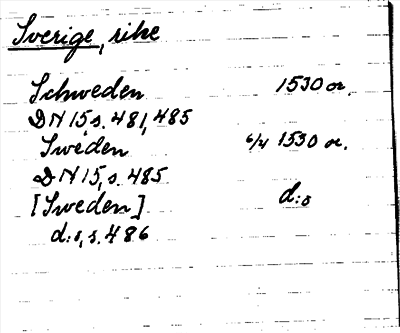 Sverige, rike
Schweden 1530 or.
DN 15 s. 481, 485
Sweden 6/4 1530 or.
DN 15, s. 485
[Sweden] d:o
d:o, s. 486